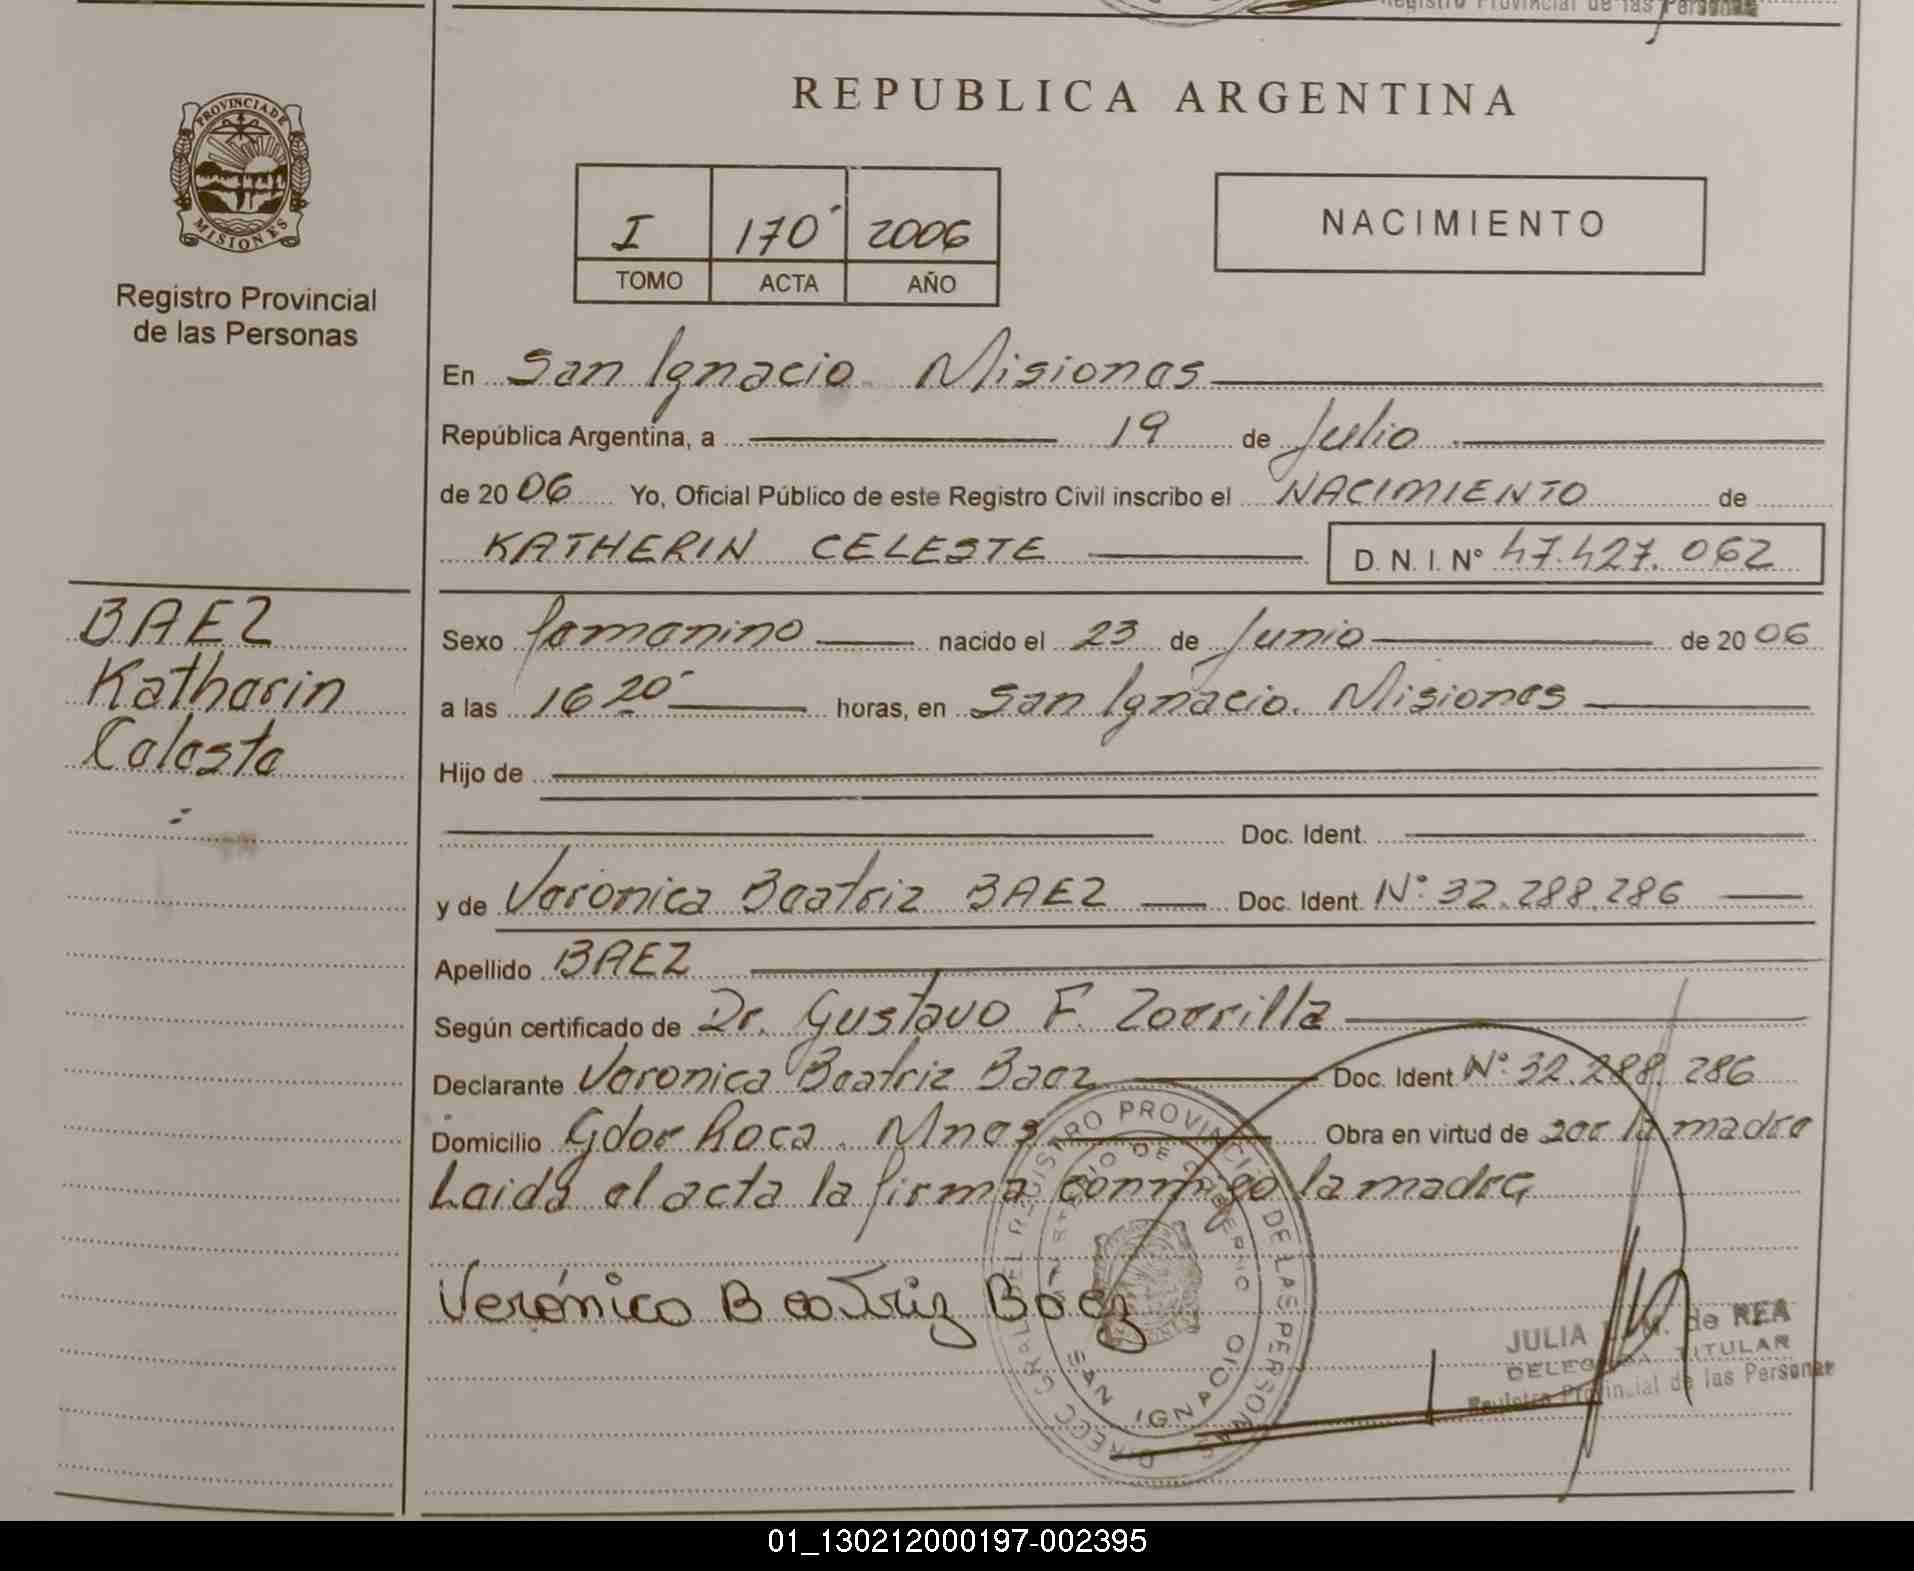 Registro Provincial de las Personas
REPUBLICA ARGENTINA
PROVINCIA DE
MISIONES
Registro Provincial
de las Personas
I 170 2006
TOMO ACTA AÑO
NACIMIENTO
En San Ignacio Misiones
República Argentina, a 19 de Julio
de 2006 Yo, Oficial Público de este Registro Civil inscribo el NACIMIENTO de
KATHERIN CELESTE D. N. I. Nº 47.427.062
BAEZ
Katherin
Celeste
Sexo femenino nacido el 23 de Junio de 2006
a las 16 20 horas, en San Ignacio. Misiones
Hijo de
Doc. Ident.
y de Veronica Beatriz BAEZ Doc. Ident. Nº 32.288.286
Apellido BAEZ
Según certificado de Dr. Gustavo F. Zorrilla
Declarante Veronica Beatriz Baez Doc. Ident Nº 32.288.286
Domicilio Gdor Roca. Mnes Obra en virtud de ser la madre
Leida el acta la firma conmigo la madre
Verónica Beatriz Báez
DIRECC GRAL DEL REGISTRO PROVINCIAL DE LAS PERSONAS
MINISTERIO DE GOBIERNO
SAN IGNACIO
JULIA de REA
DELEGADA TITULAR
Registro Provincial de las Personas
01_130212000197-002395